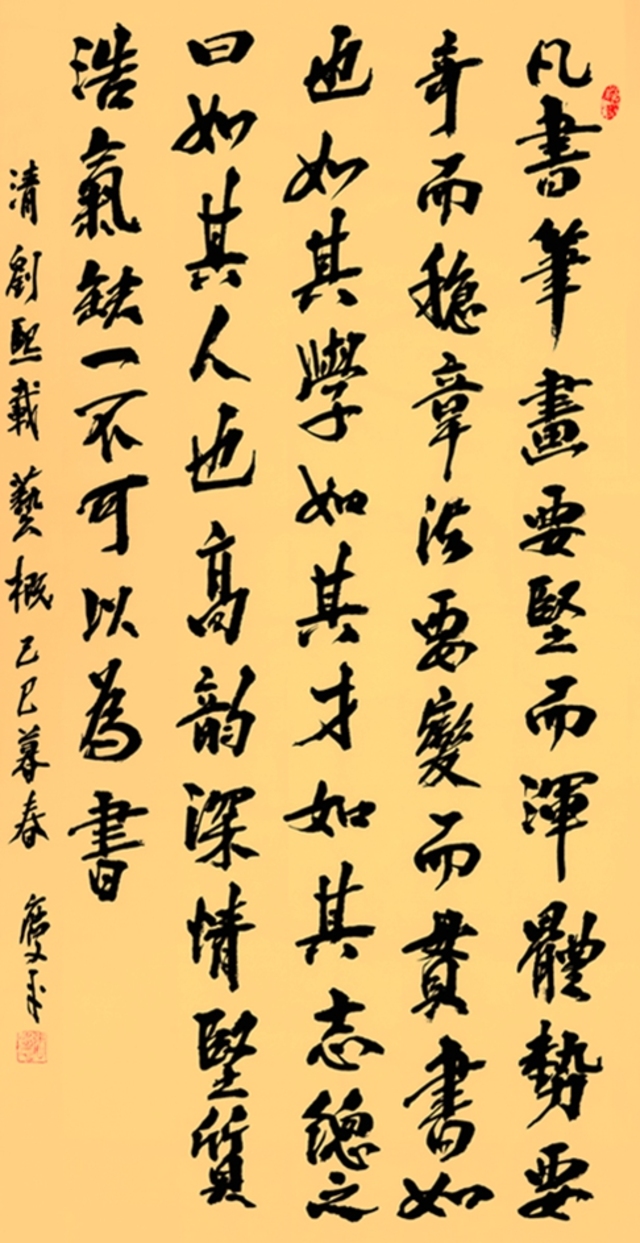 凡書筆畫要堅而渾體勢要
奇而穩章法要變而貫書如
也如其學如其才如其志總之
曰如其人也高韵深情堅質
浩氣缺一不可以為書
清劉熙載藝概己巳暮春